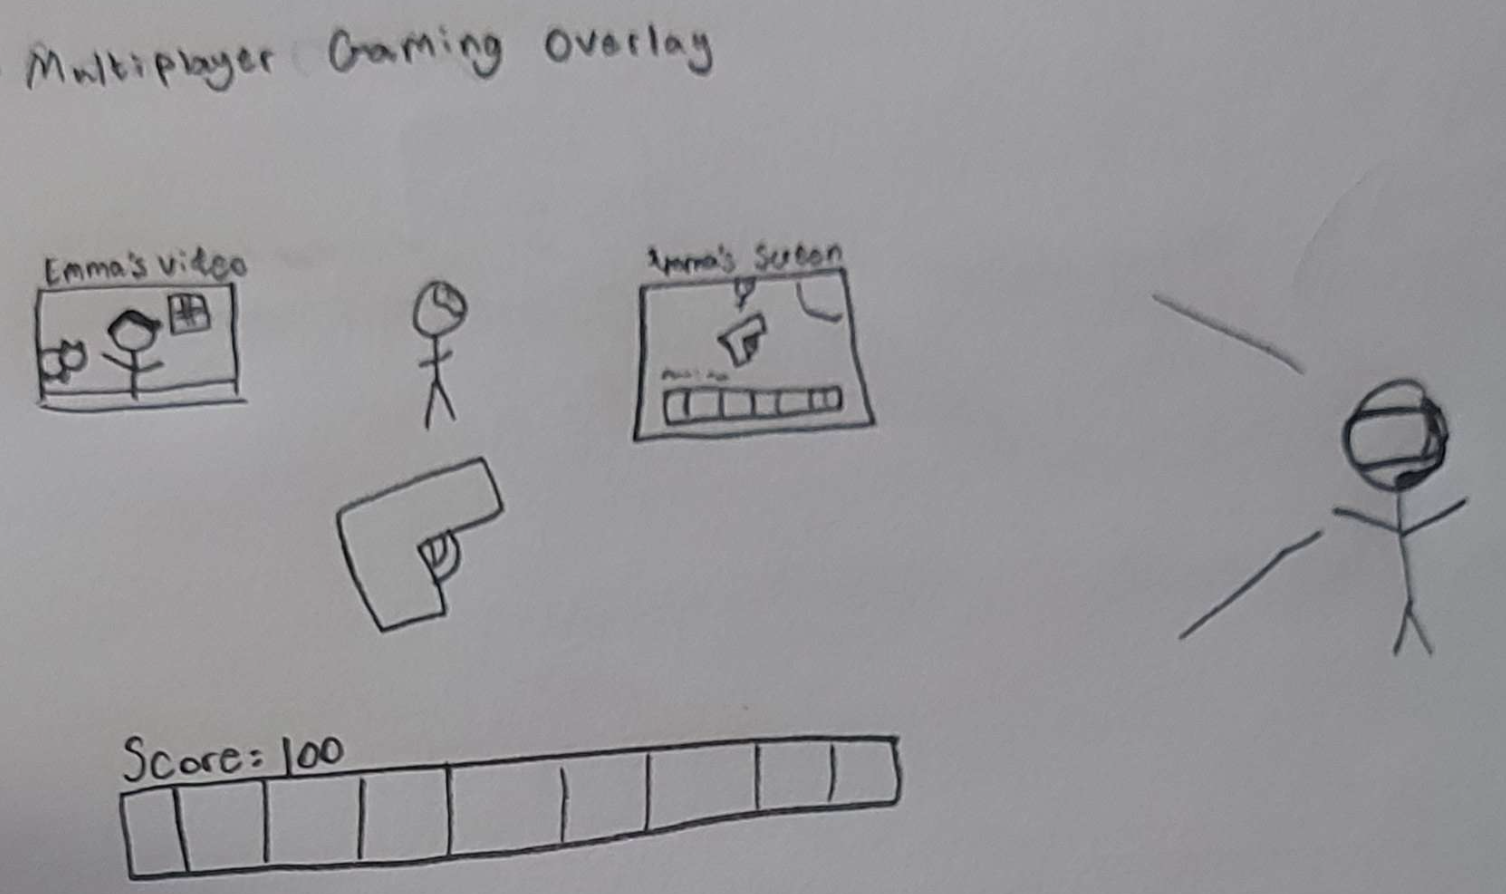 Multiplayer Gaming Overlay
Emma's video
Emma's Screen
Score: 100